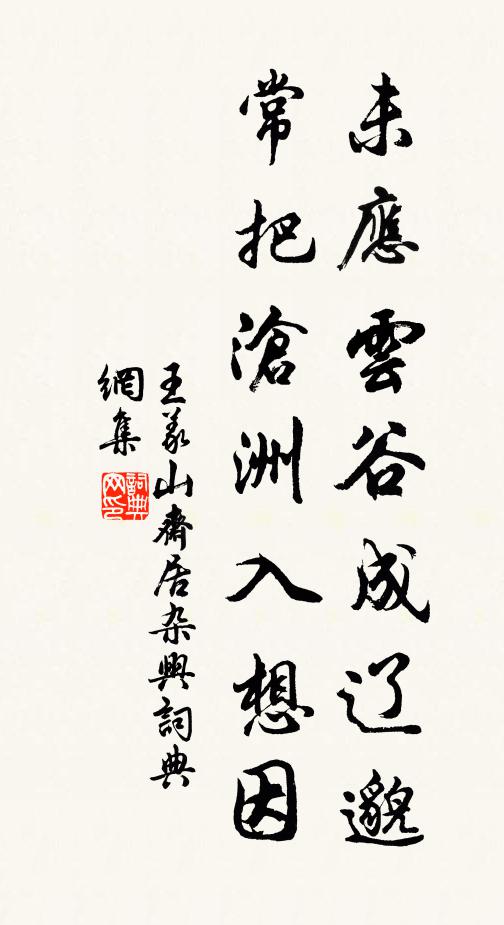 未應雲谷成辽邈
常把滄洲入想因
王義山齋居杂興詞典
網集
詞典
网印